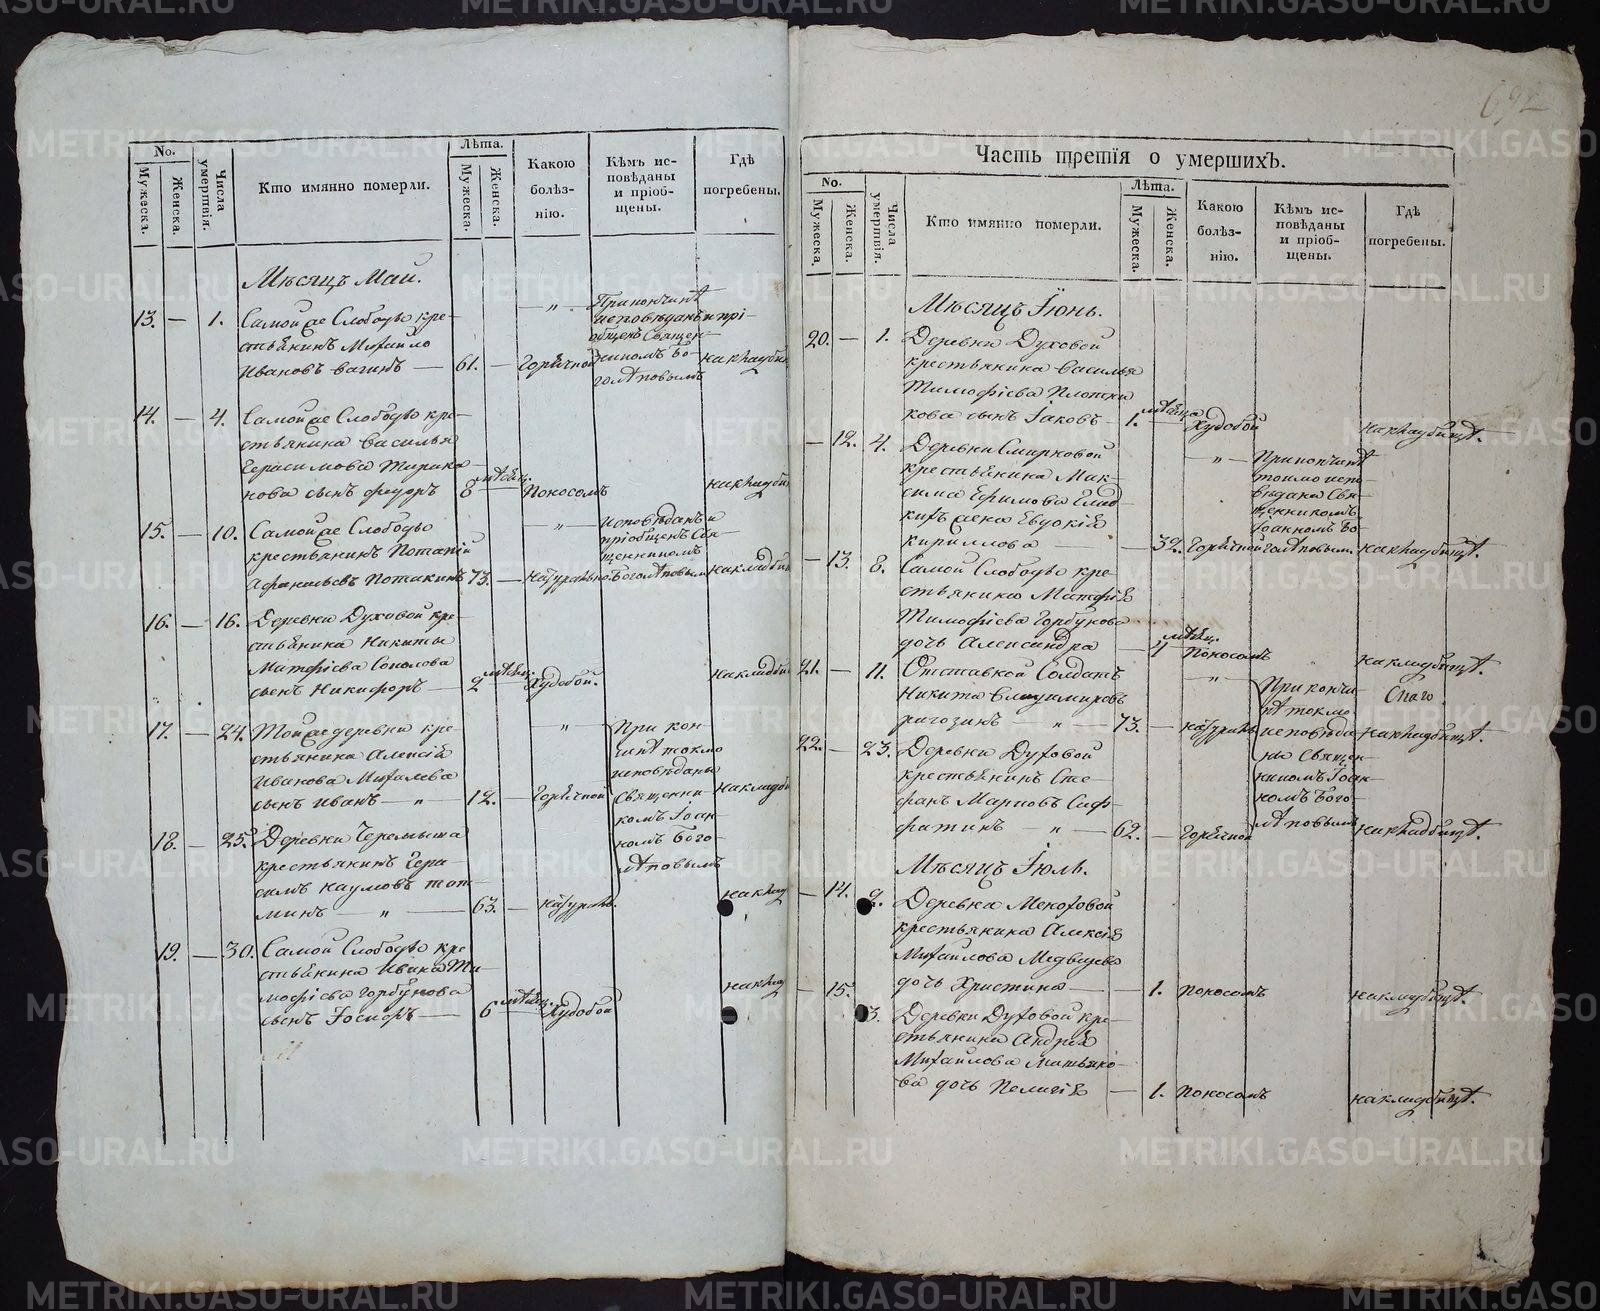 No.
Мужеска.
Женска.
Числа умертвія.
Кто имянно померли.
Лѣта.
Мужеска.
Женска.
Какою болѣз-
нію.
Кѣмъ ис-
повѣданы
и пріоб-
щены.
Гдѣ
погребены.
Мѣсяцъ Маій.
13. — 1. Самой же Слободы кре-
стьянинъ Михайло
Ивановъ Вагинъ — 61. — Горячкой
При кончинѣ
исповѣданъ и прі-
общенъ Священ-
никомъ Бо-
голѣповымъ
на кладби
14. — 4. Самой же Слободы кре-
стьянина Василья
Герасимова
сынъ Федоръ 8 мѣсяц. — Поносомъ
на кладби
15. — 10. Самой же Слободы
крестьянинъ Потапій
Афанасьевъ Потакинъ 73. — Натурально.
исповѣданъ и
пріобщенъ Свя-
щенникомъ
Боголѣповымъ
на кладби
16. — 16. Деревни Духовой кре-
стьянина Никиты
Матфіева Соколова
сынъ Никифоръ — 2 мѣсяц. Худобой.
на кладби
17. — 24. Той же деревни кре-
стьянина Алексія
Иванова Михалева
сынъ Иванъ — „ — 12. — Горячкой
При кон
чинѣ токмо
исповѣданы
Священни-
комъ Іоан
номъ Бого-
лѣповымъ
на кладби
18. — 25. Деревни Черемыша
крестьянинъ Гера-
симъ Наумовъ Топ-
минъ — „ — 63. — Натураль.
на клад
19. — 30. Самой Слободы кре
стьянина Ивана Ти-
мофіева Горбунова
сынъ Іосифъ — 6 мѣсяц. Худобой
на клад
692
Часть третія о умершихъ.
No.
Мужеска.
Женска.
Числа умертвія.
Кто имянно померли.
Лѣта.
Мужеска.
Женска.
Какою
болѣз-
нію.
Кѣмъ ис-
повѣданы
и пріоб-
щены.
Гдѣ
погребены.
Мѣсяцъ Іюнь.
20. — 1. Деревни Духовой
крестьянина Василья
Тимофіева Плотни
кова сынъ Іаковъ — 1. мѣсяца Худобой
на кладбищѣ.
— 12. 4. Деревни Смирновой
крестьянина Мак-
сима Ефимова Глад
кихъ жена Евдокія
Кириллова — 32. Горячкой
При кончинѣ
токмо испо-
вѣдана Свя-
щенникомъ
Іоанномъ Бо-
голѣповым.
на кладбищѣ.
— 13. 8. Самой Слободы кре-
стьянина Матфія
Тимофіева Горбунова
дочь Александра — 4 мѣсяц. Поносомъ
на кладбищѣ.
21. — 11. Отставной Солдатъ
Никита Владимировъ
Рагозинъ — „ — 73. — Натураль.
При кончи
нѣ токмо
исповѣда
ны Священ
никомъ Іоан
номъ Бого-
лѣповымъ
на кладбищѣ.
22. — 23. Деревни Духовой
крестьянинъ Сте-
фанъ Марковъ Саф-
фатинъ — „ — 62. — Горячкой
на кладбищѣ.
Мѣсяцъ Іюль.
— 14. 2. Деревни Мекоховой
крестьянина Алексія
Михайлова Медведева
дочь Христина — 1. Поносомъ
на кладбищѣ.
— 15. 3. Деревни Духовой кре-
стьянина Андрея
Михайлова
дочь Пелагія — 1. Поносомъ
на кладбищѣ.
METRIKI.GASO-URAL.RU